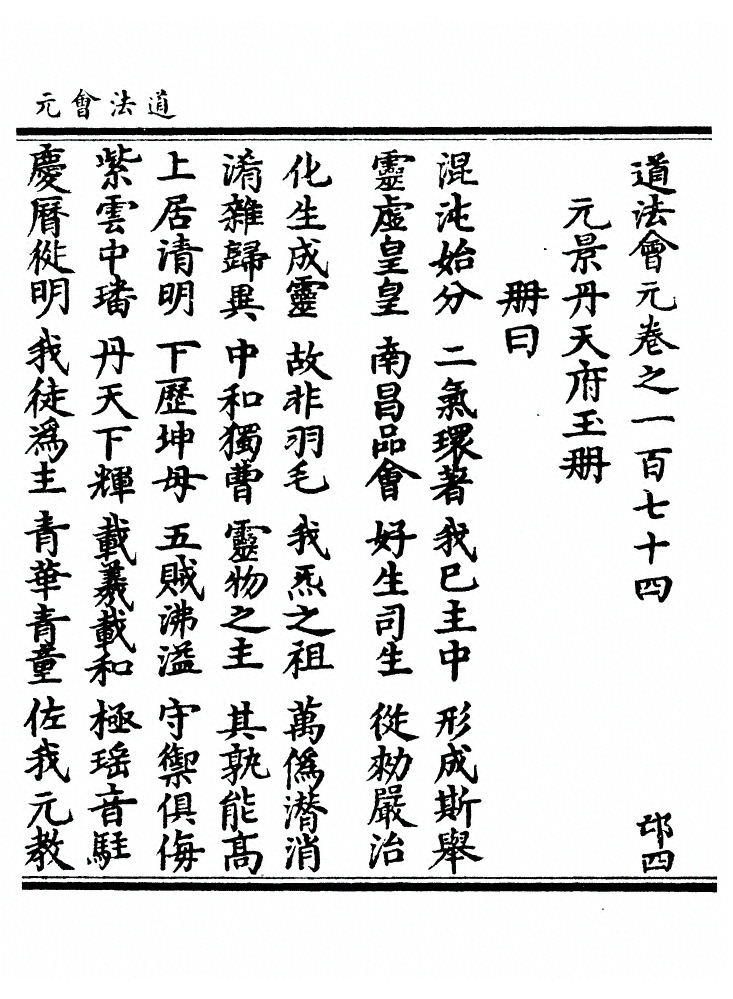 道法會元
道法會元卷之一百七十四 邙四
元景丹天府玉冊
冊曰
混沌始分 二氣環著 我巳主中 形成斯舉
靈虛皇皇 南昌品會 好生司生 從勑嚴治
化生成靈 故非羽毛 我炁之祖 萬僞潛消
淆雜歸異 中和獨曹 靈物之主 其孰能高
上居清明 下歷坤母 五賊沸溢 守禦俱侮
紫雲中璠 丹天下輝 載羲載和 極瑶音駐
慶曆從明 我徒爲主 青華青童 佐我元教